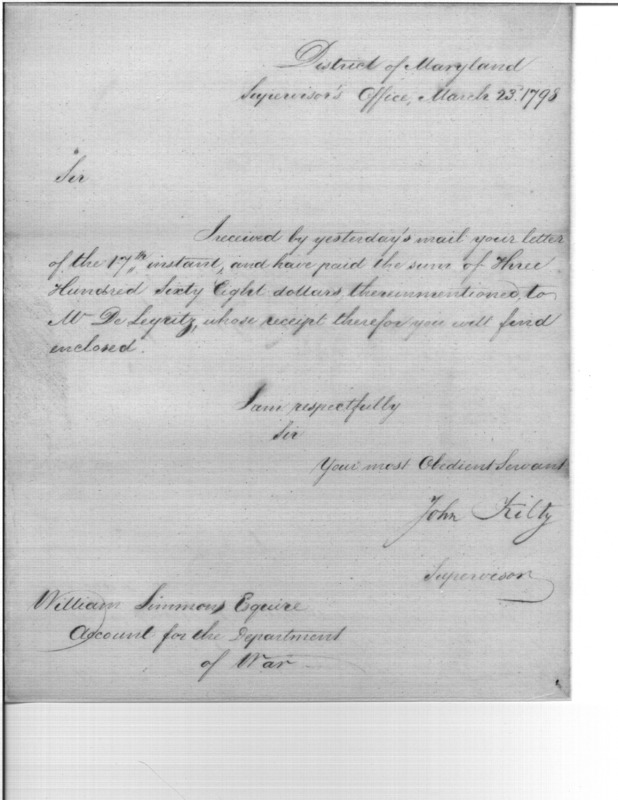 District of Maryland
Supervisor's Office, March 23d. 1798
Sir
I received by yesterday's mail your letter
of the 17th instant, and have paid the sum of Three
Hundred Sixty Eight dollars, thereinmentioned, to
Mr De Legritz, whose receipt therefor you will find
enclosed.
I am respectfully
Sir
Your most Obedient Servant
John Kilty
Supervisor
William Simmons Equire
Account for the Department
of War